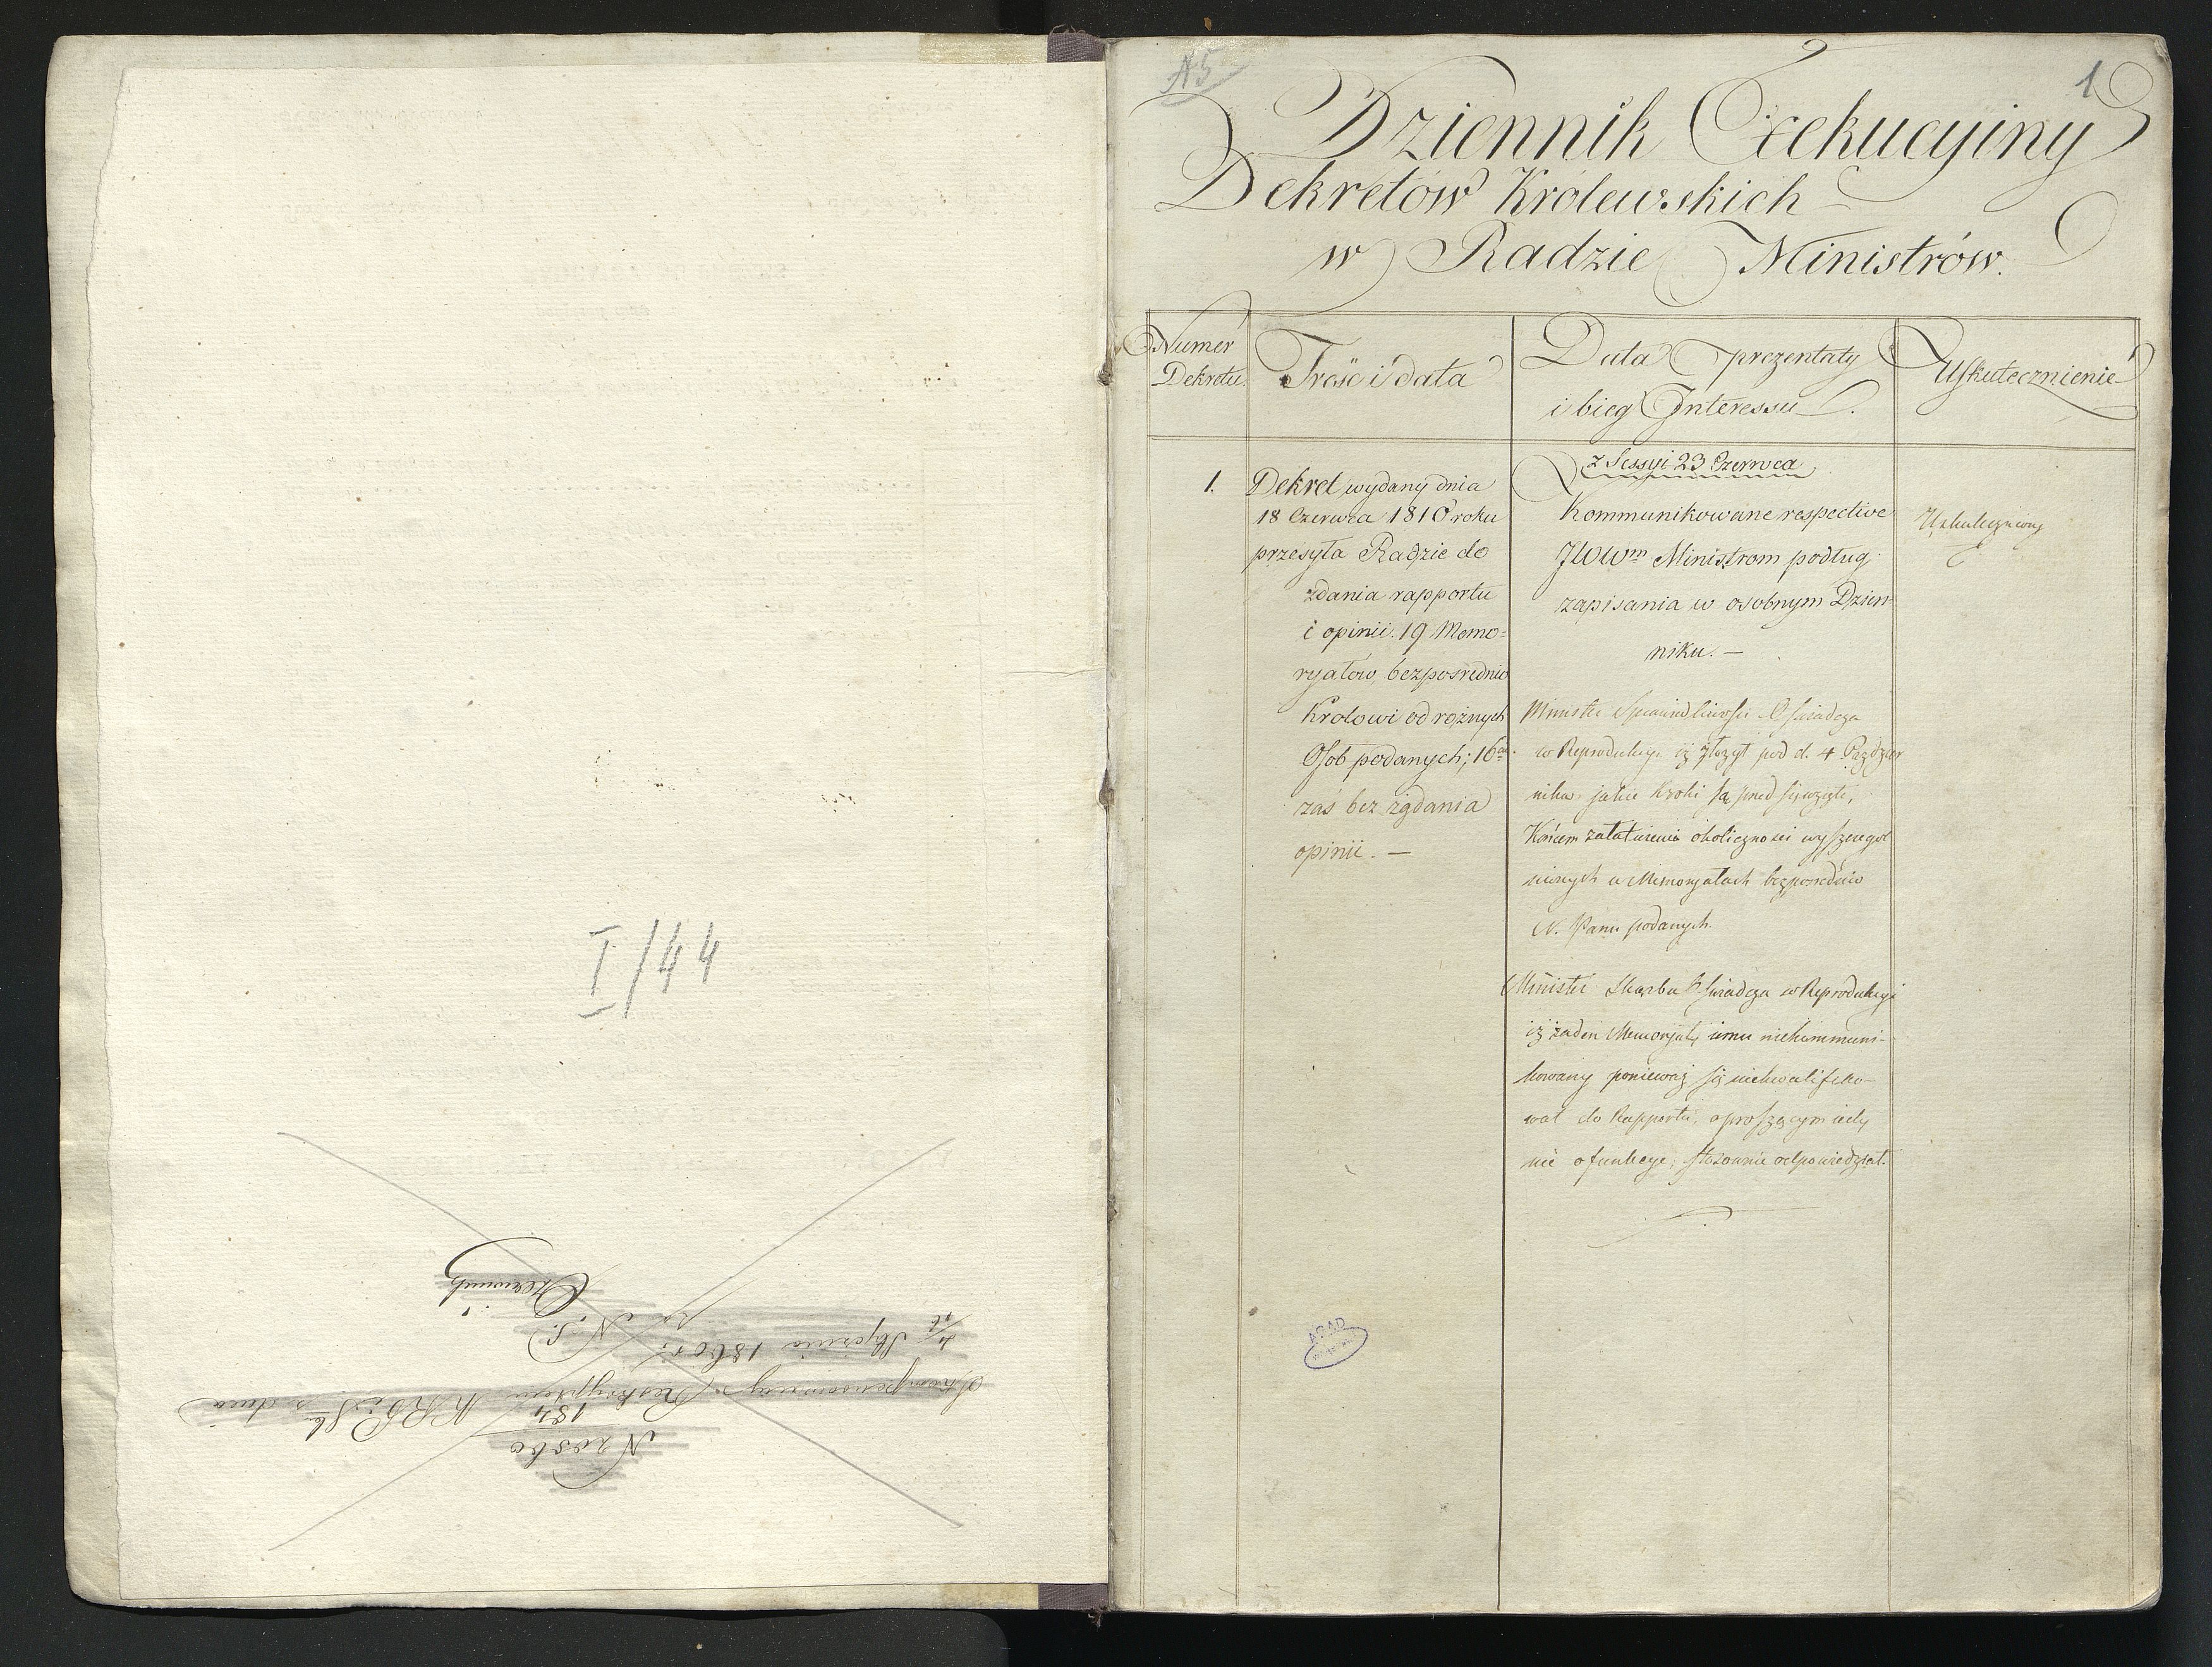 I/44
N 20560
184
Skompensowany Reskryptem KRPiSk z dnia
4/16 Stycznia 1860 r.
za N. S.
A5
1
Dziennik Exekucyiny
Dekretów Królewskich
w Radzie Ministrów.
Numer
Dekretu.
Treść i data
Data prezentaty
i bieg Interessu.
Uskutecznienie
1.
Dekret wydany dnia
18 Czerwca 1810 roku
przesyła Radzie do
zdania rapportu
i opinii. 19 Memo=
ryałow, bezposrednio
Krolowi od rożnych
Osob podanych; 16
zaś bez żądania
opinii. —
z Sessyi 23 Czerwca
Kommunikowane respective
JWWm Ministrom podług
zapisania w osobnym Dzien-
niku. —
Minister Sprawiedliwości Oświadcza
w Reprodukcyi iż złożył pod d. 4 Paździer
nika jakie Kroki są przed sięwzięte,
Końcem załatwienia okoliczności wyszczegol
nionych w Memoryałach bezpośrednio
N. Panu podanych.
Minister Skarbu Oświadcza w Reprodukcyi
iż żaden Memoryał, iemu niekommuni-
kowany ponieważ się niekwalifiko-
wał do Rapportu, a proszącym iedy
nie o funkcye, stosownie odpowiedział.
Uskuteczniony
AGAD